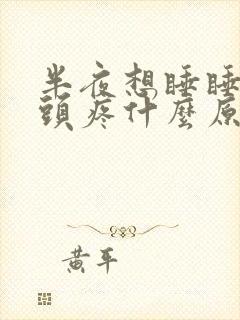 半夜想睡睡
頭疼什麼原
黃平